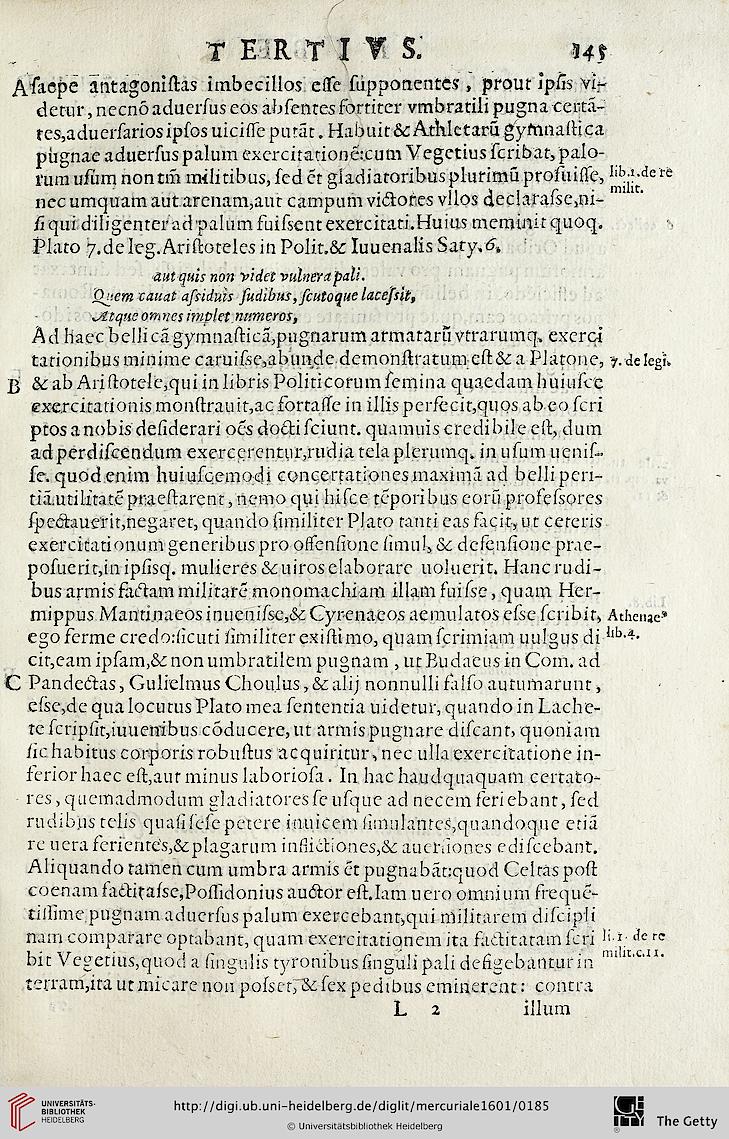 TERTIVS. 145
A saepe antagonistas imbecillos esse supponentes, prout ipsis vi-
detur, necnō aduersus eos absentes fortiter vmbratili pugna certā-
tes, aduersarios ipsos uicisse putāt. Habuit & Athletarū gymnastica
pugnae aduersus palum exercitationē: cum Vegetius scribat, palo-
rum usum non tm̄ militibus, sed ēt gladiatoribus plurimū profuisse, lib.1.de rē
milit.
nec umquam aut arenam, aut campum victores vllos declarasse, ni-
si qui diligenter ad palum fuissent exercitati. Huius meminit quoq.
Plato 7. de leg. Aristoteles in Polit. & Iuuenalis Saty. 6.
aut quis non videt vulnera pali.
Quem cauat assiduis sudibus, scutoque lacessit,
Atque omnes implet numeros,
Ad haec bellicā gymnasticā, pugnarum armatarū vtrarumq. exerci
tationibus minime caruisse, abunde demonstratum est & a Platone, 7. de legi.
B & ab Aristotele, qui in libris Politicorum semina quaedam huiusce
exercitationis monstrauit, ac fortasse in illis perfecit, quos ab eo scri
ptos a nobis desiderari oēs docti sciunt. quamuis credibile est, dum
ad perdiscendum exercerentur, rudia tela plerumq. in usum uenis-
se. quod enim huiuscemodi concertationes maximā ad belli peri-
tiā utilitatē praestarent, nemo qui hisce tēporibus eorū professores
spectauerit, negaret, quando similiter Plato tanti eas facit, ut ceteris
exercitationum generibus pro offensione simul, & defensione prae-
posuerit, in ipsisq. mulieres & uiros elaborare uoluerit. Hanc rudi-
bus armis factam militarē monomachiam illam fuisse, quam Her-
mippus Mantinaeos inuenisse, & Cyrenaeos aemulatos esse scribit, Athenae*
lib.4.
ego ferme credo: sicuti similiter existimo, quam scrimiam uulgus di
cit, eam ipsam, & non umbratilem pugnam, ut Budaeus in Com. ad
C Pandectas, Gulielmus Choulus, & alij nonnulli falso autumarunt,
esse, de qua locutus Plato mea sententia uidetur, quando in Lache-
te scripsit, iuuenibus cōducere, ut armis pugnare discant, quoniam
sic habitus corporis robustus acquiritur, nec ulla exercitatione in-
ferior haec est, aut minus laboriosa. In hac haudquaquam certato-
res, quemadmodum gladiatores se usque ad necem feriebant, sed
rudibus telis quasi sese petere inuicem simulantes, quandoque etiā
re uera ferientes, & plagarum inflictiones, & auersiones ediscebant.
Aliquando tamen cum umbra armis ēt pugnabāt: quod Celtas post
coenam factitasse, Possidonius auctor est. Iam uero omnium frequē-
tissime pugnam aduersus palum exercebant, qui militarem discipli
nam comparare optabant, quam exercitationem ita factitatam scri li.1. de re
milit.c.11.
bit Vegetius, quod a singulis tyronibus singuli pali defigebantur in
terram, ita ut micare non posset, & sex pedibus eminerent: contra
L 2 illum
UNIVERSITÄTS-
BIBLIOTHEK
HEIDELBERG
http://digi.ub.uni-heidelberg.de/diglit/mercuriale1601/0185
© Universitätsbibliothek Heidelberg
The Getty